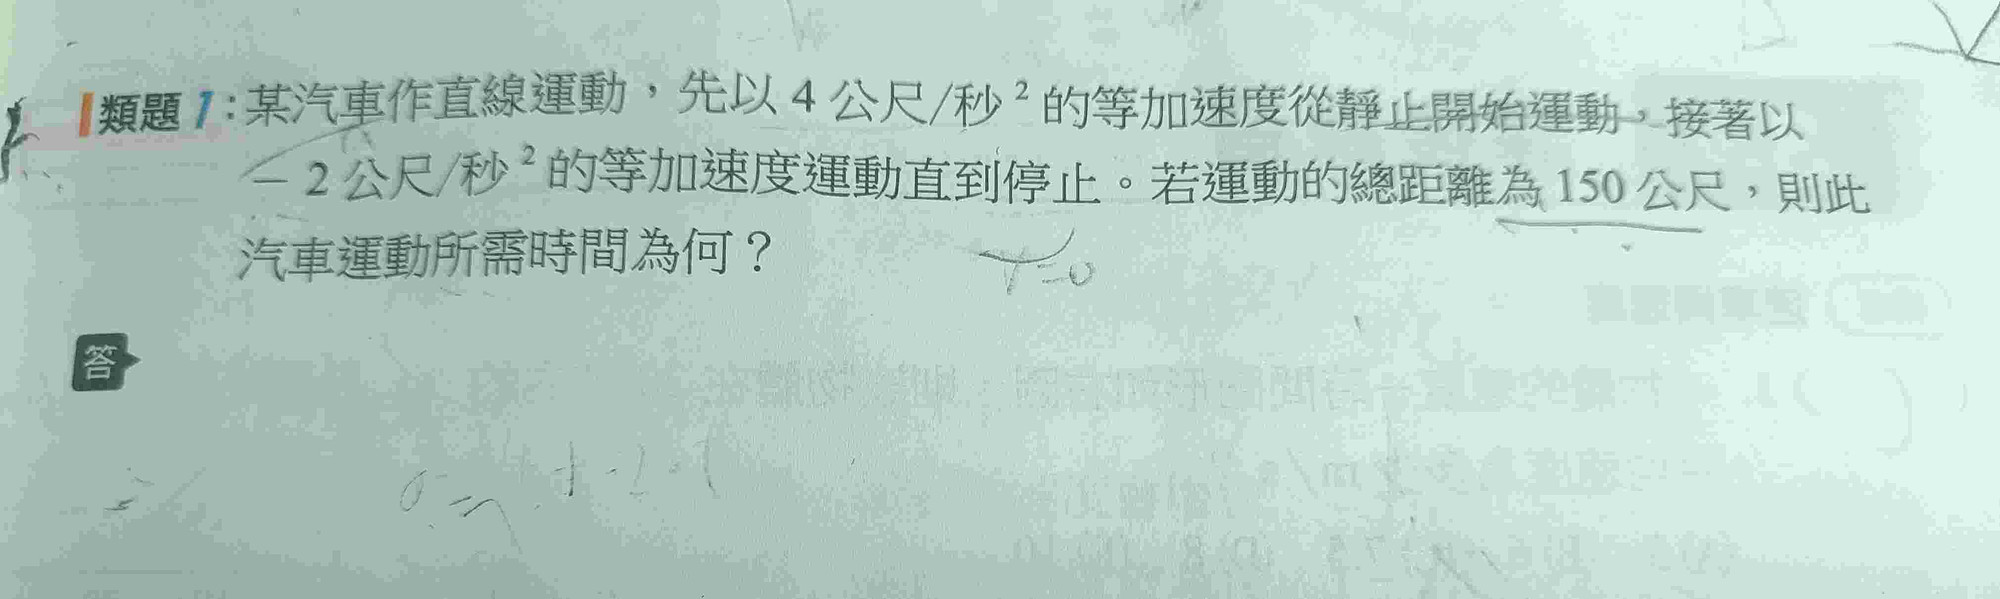 類題1:某汽車作直線運動,先以 4 公尺/秒² 的等加速度從靜止開始運動,接著以
－2 公尺/秒² 的等加速度運動直到停止。若運動的總距離為 150 公尺,則此
汽車運動所需時間為何?
答